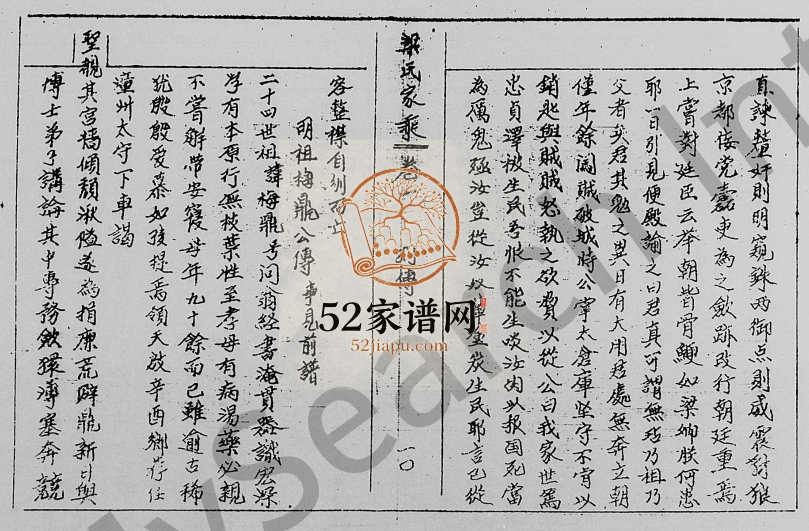 直諫鏊奸則明窺銖両御点則威震豺狼
京都倭党囂吏為之斂跡改行朝廷重焉
上嘗對廷臣云举朝皆骨鲠如梁卿朕何患
耶一日引見便殿諭之曰君真可謂無玷乃祖乃
父者矣君其勉之異日有大用君處無奔立朝
僅年餘闖賊破城時公宰太倉庫坚守不肯以
銷匙與賊賊怒執之欲費以從公曰我家世篤
忠貞澤被生民吾恨不能生啖汝肉以报国死當
為厲鬼殛汝豈從汝以 炭生民耶言已從
梁氏家乘 卷 列傳 一〇
容整襟自刎而亡
明祖梅鼎公傳 事見前譜
二十四世祖諱梅鼎号问翁经書淹貫器識宏深
学有本原行無枝葉性至孝母有病湯藥必親
不嘗解帶安寢母年九十餘而已雖俞古稀
犹殷殷爱慕如孩提焉領天啟辛酉鄉荐任
潼州太守下車謁
聖視其宫墙傾頹湫隘遂為捐廉荒辟鼎新日與
博士弟子講論其中專務斂環薄塞奔競
52家谱网
52jiapu.com